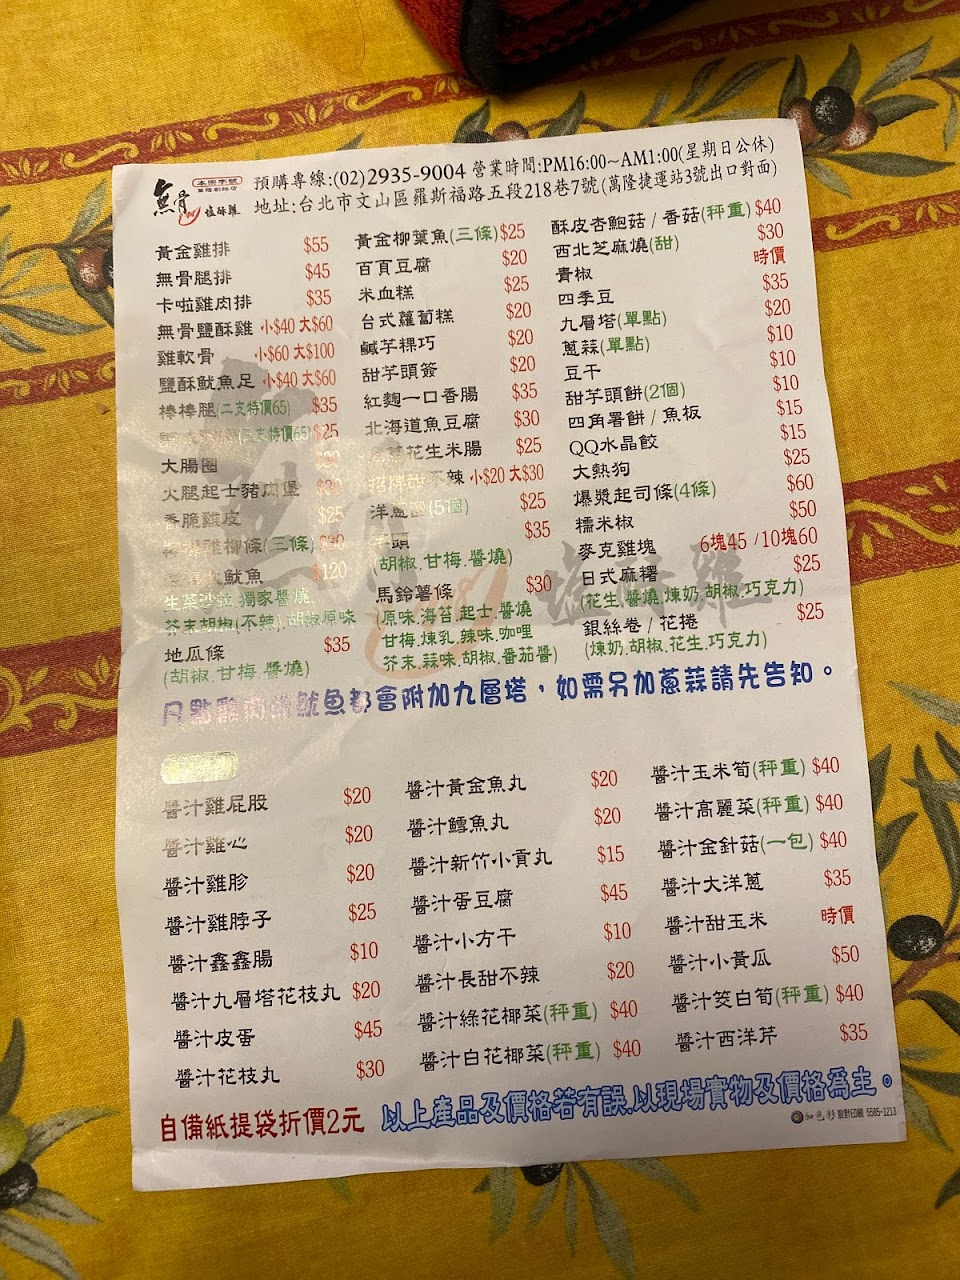 無骨 鹽酥雞
本家字號
萬隆創始店
預購專線:(02)2935-9004 營業時間:PM16:00~AM1:00(星期日公休)
地址:台北市文山區羅斯福路五段218巷7號(萬隆捷運站3號出口對面)
黃金雞排 $55
無骨腿排 $45
卡啦雞肉排 $35
無骨鹽酥雞 小$40 大$60
雞軟骨 小$60 大$100
鹽酥魷魚足 小$40 大$60
棒棒腿(二支特價65) $35
(二支特價65) $25
大腸圈
火腿起士豬肉堡 $30
香脆雞皮 $25
雞柳條(三條) $30
魷魚 $120
生菜沙拉.獨家醬燒.
芥末胡椒(不辣).胡椒原味
地瓜條 $35
(胡椒.甘梅.醬燒)
黃金柳葉魚(三條) $25
百頁豆腐 $20
米血糕 $25
台式蘿蔔糕 $20
鹹芋粿巧 $20
甜芋頭簽 $20
紅麴一口香腸 $35
北海道魚豆腐 $30
花生米腸 $25
招牌甜不辣 小$20 大$30
洋蔥圈(5個) $25
芋頭 $35
(胡椒.甘梅.醬燒)
馬鈴薯條 $30
(原味.海苔.起士.醬燒
甘梅.煉乳.辣味.咖哩
芥末.蒜味.胡椒.番茄醬)
酥皮杏鮑菇 / 香菇(秤重) $40
西北芝麻燒(甜) $30
青椒 時價
四季豆 $35
九層塔(單點) $20
蔥蒜(單點) $10
豆干 $10
甜芋頭餅(2個) $10
四角薯餅 / 魚板 $15
QQ水晶餃 $15
大熱狗 $25
爆漿起司條(4條) $60
糯米椒 $50
麥克雞塊 6塊45 /10塊60
日式麻糬 $25
(花生.醬燒.煉奶.胡椒.巧克力)
銀絲卷 / 花捲 $25
(煉奶.胡椒.花生.巧克力)
凡點雞肉類魷魚都會附加九層塔，如需另加蔥蒜請先告知。
醬汁雞屁股 $20
醬汁雞心 $20
醬汁雞胗 $20
醬汁雞脖子 $25
醬汁鑫鑫腸 $10
醬汁九層塔花枝丸 $20
醬汁皮蛋 $45
醬汁花枝丸 $30
醬汁黃金魚丸 $20
醬汁鱈魚丸 $20
醬汁新竹小貢丸 $15
醬汁蛋豆腐 $45
醬汁小方干 $10
醬汁長甜不辣 $20
醬汁綠花椰菜(秤重) $40
醬汁白花椰菜(秤重) $40
醬汁玉米筍(秤重) $40
醬汁高麗菜(秤重) $40
醬汁金針菇(一包) $40
醬汁大洋蔥 $35
醬汁甜玉米 時價
醬汁小黃瓜 $50
醬汁筊白筍(秤重) $40
醬汁西洋芹 $35
自備紙提袋折價2元 以上產品及價格若有誤.以現場實物及價格為主。
如色彩 設計印刷 5585-1213